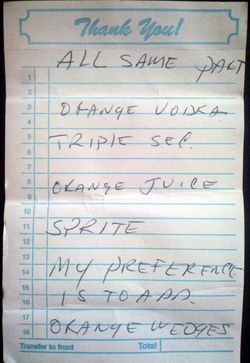 Thank You!
ALL SAME PART
1
2
3 ORANGE VODKA
4
5 TRIPLE SEC.
6
7
8 ORANGE JUICE
9
10
11 SPRITE
12
13
14 MY PREFERENCE
15
16 IS TO ADD.
17
18 ORANGE WEDGES
Transfer to front Total